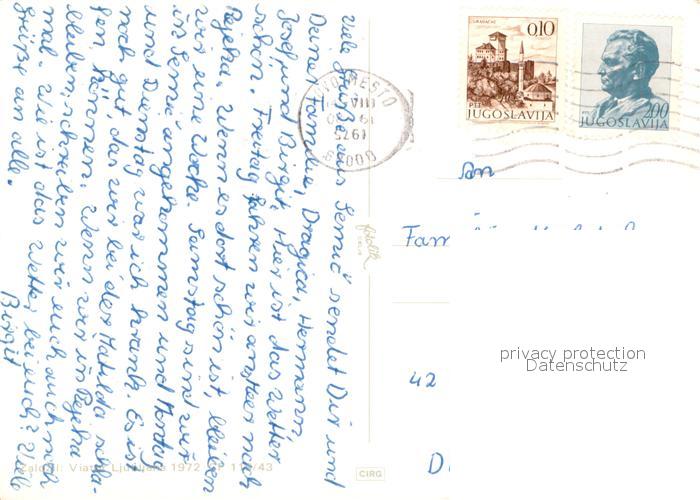 viele Grüße aus Semič sendet Dir und
Deiner Familie, Dragica, Hermann,
Josef und Birgit. Hier ist das Wetter
schön. Freitag fahren wir ans Meer nach
Rijeka. Wenn es dort schön ist, bleiben
wir eine Woche. Samstag sind wir
in Semič angekommen und Montag
und Dienstag war ich krank. Es ist
noch gut, das wir bei der Matilda schla-
fen können. Wenn wir in Rijeka
bleiben, schreiben wir euch auch noch
mal. Wie ist das Wetter bei euch? Viele
Grüße an alle.
Birgit
NOVO MESTO
VIII
1976
68000
GRADAČAC
0,10
PTT
JUGOSLAVIJA
2,00
PTT
JUGOSLAVIJA
An
Fam
42
D
privacy protection
Datenschutz
Založil: Viator Ljubljana 1972
CIRG